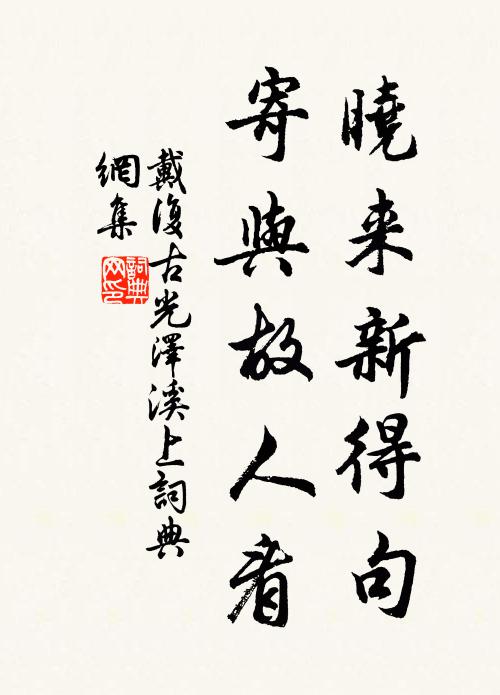 曉来新得句
寄與故人看
戴復古光澤溪上詞典
網集
詞典
网印